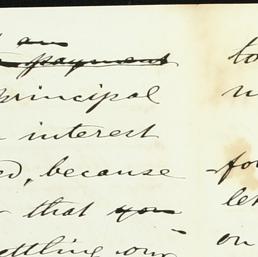 an
payment
principal
interest
ed, because
that you
ettling our
to
fo
le
on